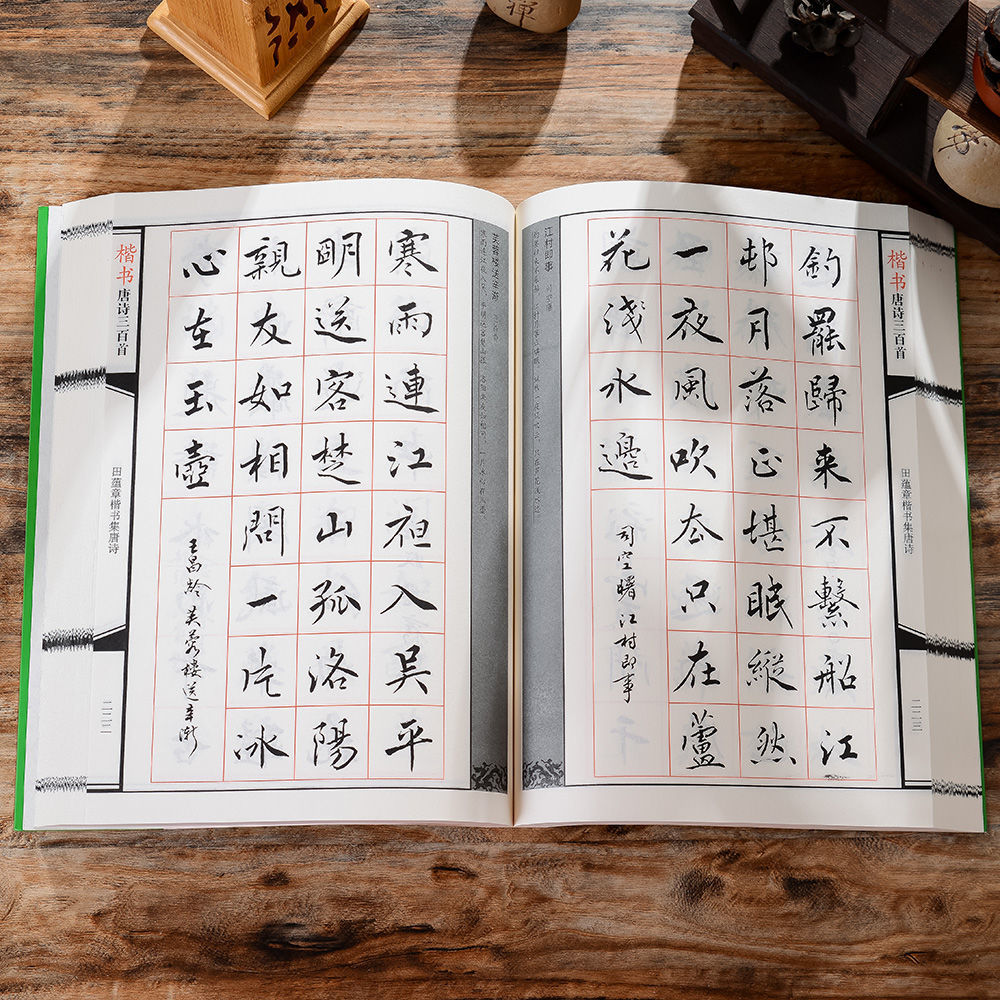 楷书唐诗三百首
田蕴章楷书集唐诗
二二二
芙蓉楼送辛渐
寒雨連江夜入吴平
明送客楚山孤洛陽
親友如相問一片冰
心在玉壺
王昌龄芙蓉楼送辛渐
江村即事 司空曙
釣罷歸来不繫船江
邨月落正堪眠縱然
一夜風吹去只在蘆
花淺水邊
司空曙江村即事
楷书唐诗三百首
田蕴章楷书集唐诗
二二三
禅